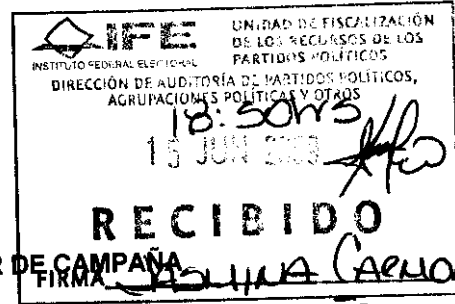 IFE
INSTITUTO FEDERAL ELECTORAL
UNIDAD DE FISCALIZACIÓN
DE LOS RECURSOS DE LOS
PARTIDOS POLÍTICOS
DIRECCIÓN DE AUDITORÍA DE PARTIDOS POLÍTICOS,
AGRUPACIONES POLÍTICAS Y OTROS
18:50hrs
15 JUN
RECIBIDO
R DE CAMPAÑA
FIRMA